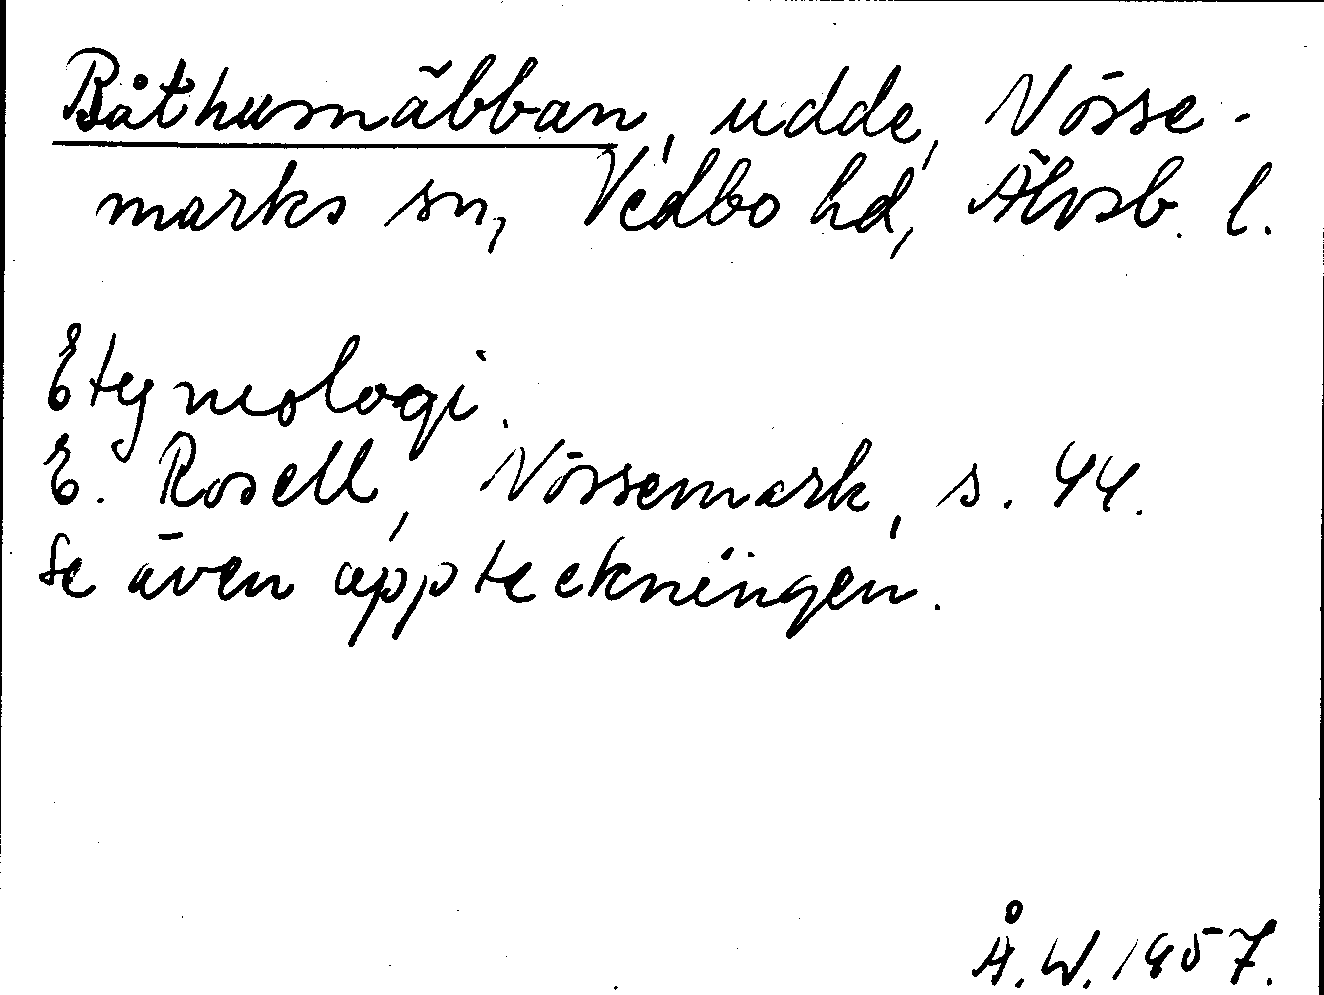 Båthusnäbban, udde, Nösse-
marks sn, Vedbo hd, Älvsb. l.
Etymologi.
E. Rosell, Nössemark, s. 44.
Se även uppteckningen.
Å. W. 1957.